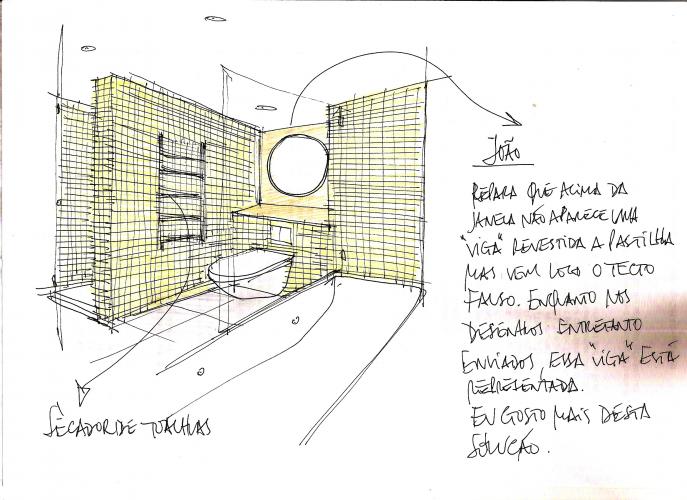 JOÃO
REPARA QUE ACIMA DA
JANELA NÃO APARECE UMA
"VIGA" REVESTIDA A PASTILHA
MAS VEM LOGO O TECTO
FALSO. ENQUANTO NOS
DESENHOS ENTRETANTO
ENVIADOS, ESSA "VIGA" ESTÁ
REPRESENTADA.
EU GOSTO MAIS DESTA
SOLUÇÃO.
SECADOR DE TOALHAS